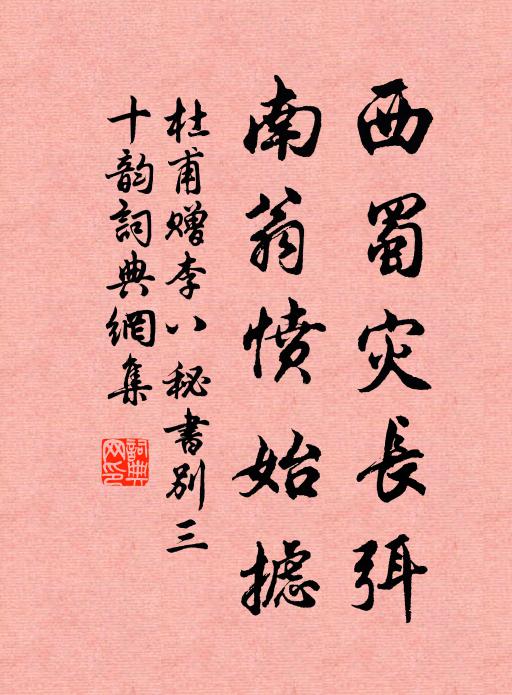 西蜀灾長弭
南翁憤始攄
杜甫赠李八秘書别三
十韵詞典網集
詞典
网印